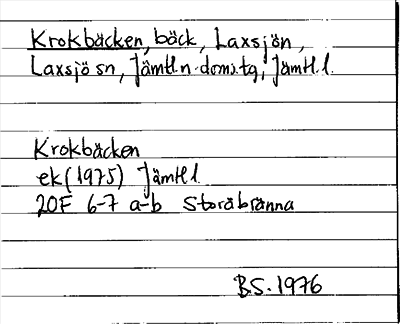 Krokbäcken, bäck, Laxsjön,
Laxsjö sn, Jämtl.n. doms.tg, Jämtl.l.
Krokbäcken
ek (1975) Jämtl l
20F 6-7 a-b Storåbränna
B.S. 1976